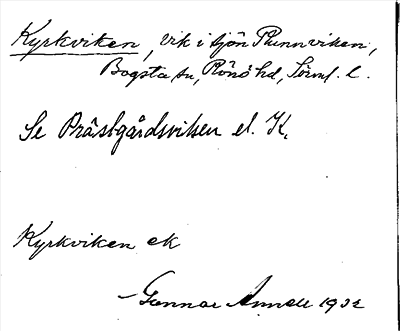 Kyrkviken, vik i sjön Runnviken,
Bogsta sn, Rönö hd, Sörml. l.
Se Prästgårdsviken el. K.
Kyrkviken ek
Gunnar Annell 1932